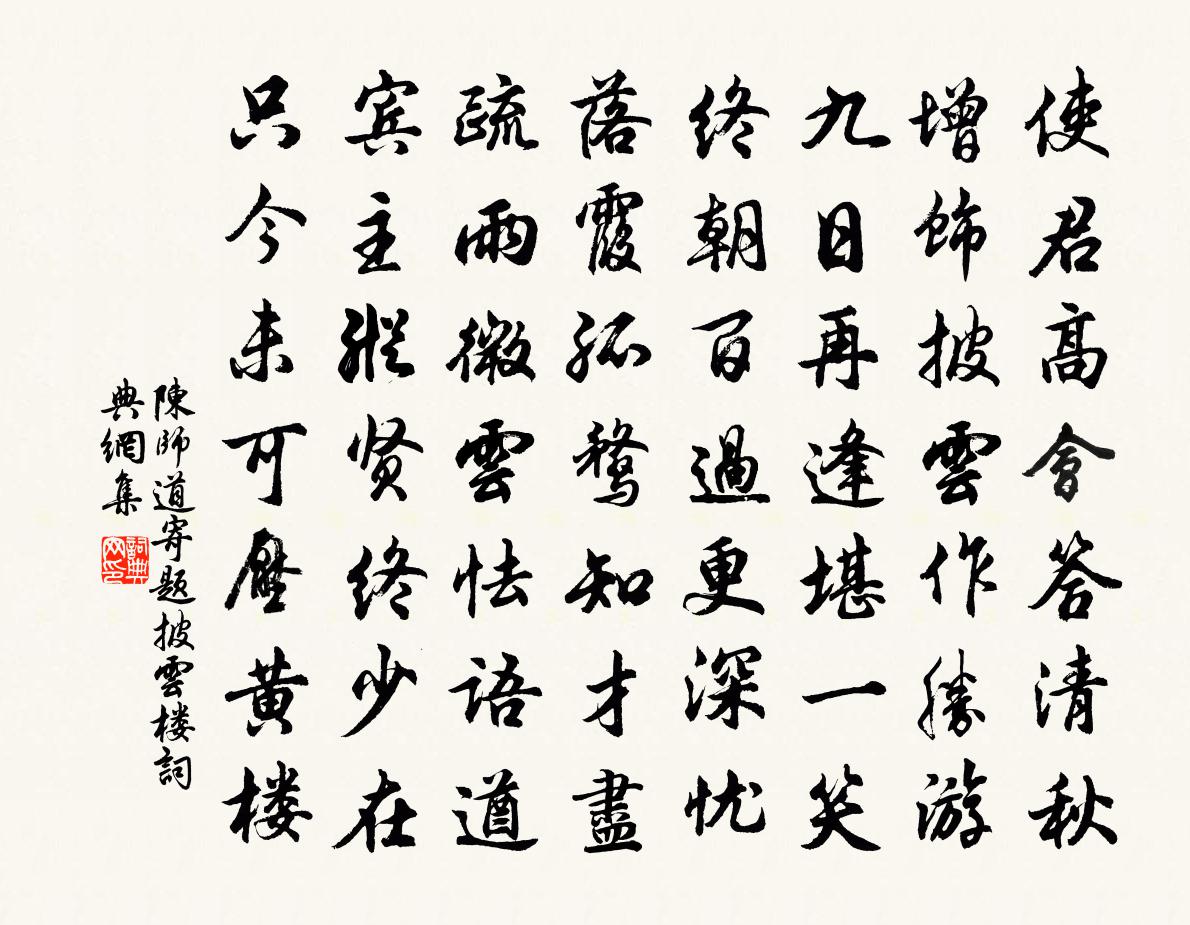 使君高會答清秋
增飾披雲作勝游
九日再逢堪一笑
終朝百過更深忧
落霞孤鶩知才盡
疏雨微雲怯語道
宾主縱贤終少在
只今未可壓黄楼
陳師道寄题披雲楼詞
典網集
詞典
网印